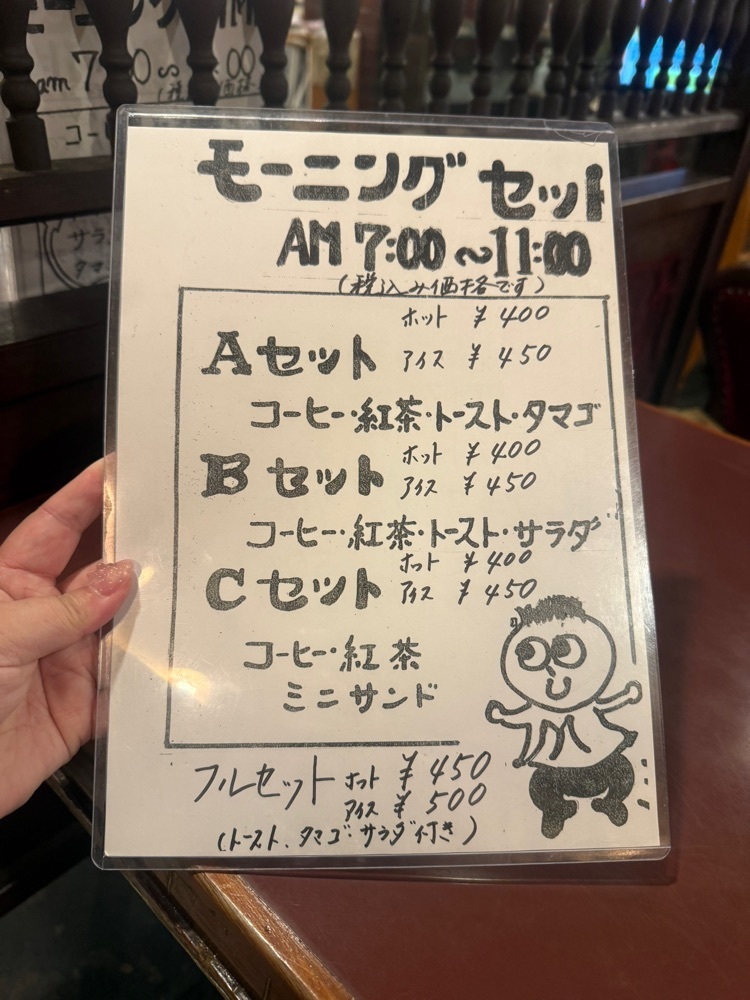 モーニング セット
AM 7:00 ~11:00
(税込み価格です)
ホット ¥400
Aセット アイス ¥450
コーヒー・紅茶・トースト・タマゴ
ホット ¥400
Bセット アイス ¥450
コーヒー・紅茶・トースト・サラダ
ホット ¥400
Cセット アイス ¥450
コーヒー・紅茶
ミニサンド
フルセット ホット ¥450
アイス ¥500
(トースト、タマゴ・サラダ付き)
am 7
00
コー
サラ
タマ